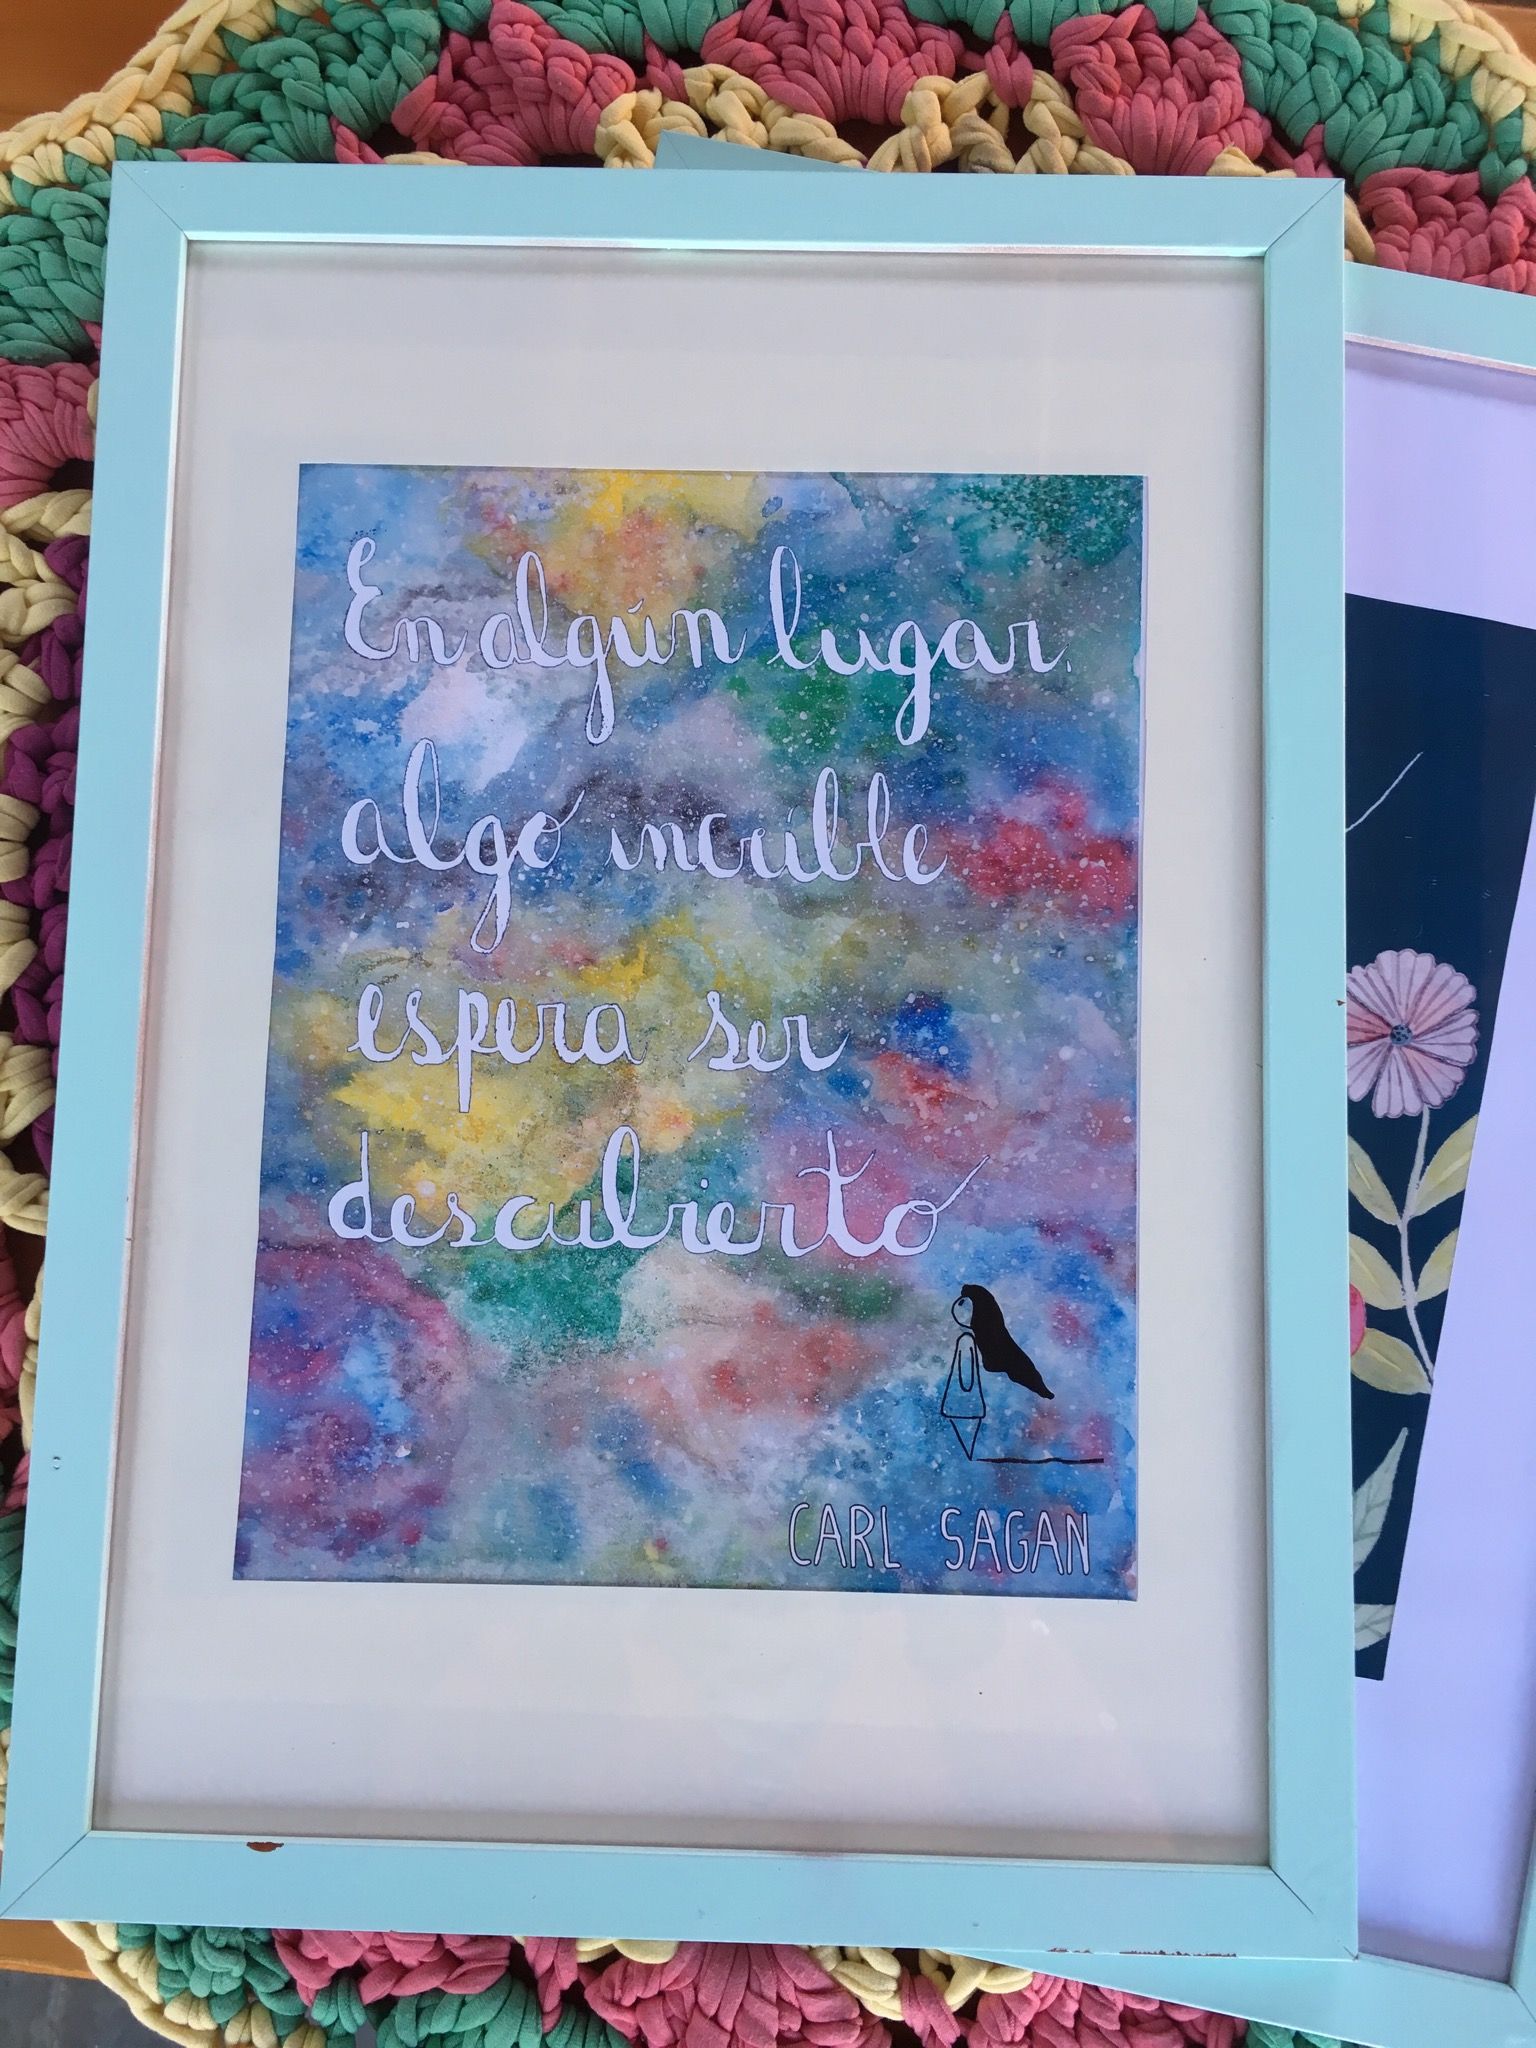 En algún lugar,
algo increíble
espera ser
descubierto
CARL SAGAN